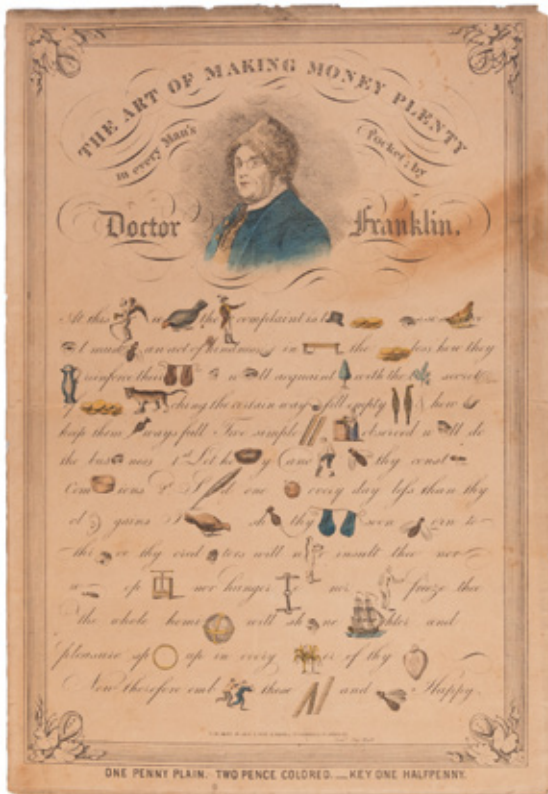 THE ART OF MAKING MONEY PLENTY
in every Man's Pocket; by
Doctor Franklin.
At this the complaint is t
t must an act of kindness in the less how they
reinforce their n ll acquaint with the secret
of ching the certain way fill empty how
keep them ways full Two simple observed w ll do
the bus ness 1st Let h y and thy const
Com ions 2d S d one every day less than thy
cl gains sh thy soon in to
thr ve thy cred tors will n insult thee nor
w op nor hunger nor freeze thee
the whole hemi will sh ne hter and
pleasure sp up in every of thy
Now therefore emb these and Happy.
ONE PENNY PLAIN. TWO PENCE COLORED. KEY ONE HALFPENNY.